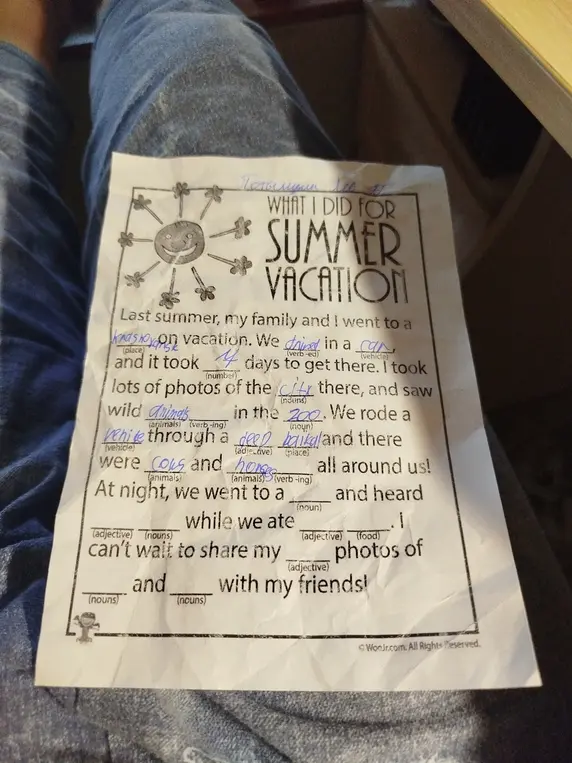 WHAT I DID FOR
SUMMER
VACATION
Last summer, my family and I went to a
on vacation. We drived in a car
(place) (verb-ed) (vehicle)
and it took 4 days to get there. I took
(number)
lots of photos of the city there, and saw
(nouns)
wild animals in the zoo. We rode a
(animals) (verb-ing) (noun)
vehile through a deep baikal and there
(vehicle) (adjective) (place)
were cows and horses all around us!
(animals) (animals) (verb-ing)
At night, we went to a ____ and heard
(noun)
____ ____ while we ate ____ ____. I
(adjective) (nouns) (adjective) (food)
can't wait to share my ____ photos of
(adjective)
____ and ____ with my friends!
(nouns) (nouns)
© WooJr.com. All Rights Reserved.